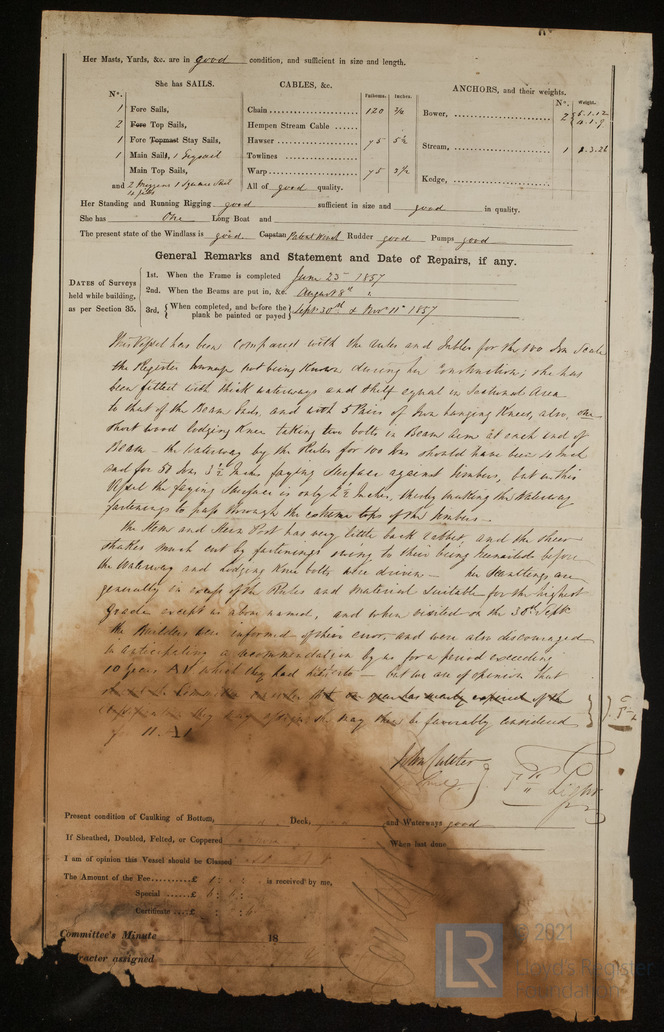 Her Masts, Yards, &c. are in good condition, and sufficient in size and length.
She has SAILS.
CABLES, &c.
ANCHORS, and their weights.
N°.
Fathoms. Inches.
N°. Weight.
1 Fore Sails,
2 Fore Top Sails,
1 Fore Topmast Stay Sails,
1 Main Sails, 1 Trysail
Main Top Sails,
and 2 1 Square Sail
Chain 120
Hempen Stream Cable
Hawser 75 5½
Towlines
Warp 75
All of good quality.
Bower, 2
Stream, 1
Kedge,
Her Standing and Running Rigging good sufficient in size and good in quality.
She has One Long Boat and
The present state of the Windlass is good Capstan Patent Winch Rudder good Pumps good
General Remarks and Statement and Date of Repairs, if any.
DATES of Surveys
held while building,
as per Section 35.
1st. When the Frame is completed June 23 1857
2nd. When the Beams are put in, &c. August 8th
3rd. { When completed, and before the plank be painted or payed } Sept 30th & Nov 11 1857
This Vessel has been compared with the rules and Tables for the 100 Ton Scale
the Register tonnage not being known during her Construction; she has
been fitted with thick waterways and shelf equal in Sectional Area
to that of the Beam Ends, and with 5 Pairs of Iron hanging Knees, also, one
short wood lodging Knee taking two bolts in Beam arm at each end of
Beam – the Waterway by the Rules for 100 tons should have been 4 Inch
and for 50 tons 3½ Inches faying surface against timbers, but in this
Vessel the faying Surface is only 2½ Inches, thereby making the Waterway
fastenings to pass through the extreme tops of the timbers –
the Stem and Stern Post has very little back rabbet, and the sheer
strakes much cut by fastenings owing to their being treenailed before
the Waterway and Lodging Knee bolts were driven – her Scantlings are
generally in excess of the Rules and material suitable for the highest
Grade except as above named, and when visited on the 30th Sept
the Builders were informed of their error, and were also discouraged
in anticipating a recommendation by us for a period exceeding
10 Years A1 which they had hitherto – but we are of opinion that
the may be favorably considered
for 11 A1
John
Light
Present condition of Caulking of Bottom, Deck, and Waterways good
If Sheathed, Doubled, Felted, or Coppered When last done
I am of opinion this Vessel should be Classed
The Amount of the Fee £ is received by me,
Special £
Certificate £
Committee's Minute 18
racter assigned
LR
© 2021
Lloyd's Register
Foundation